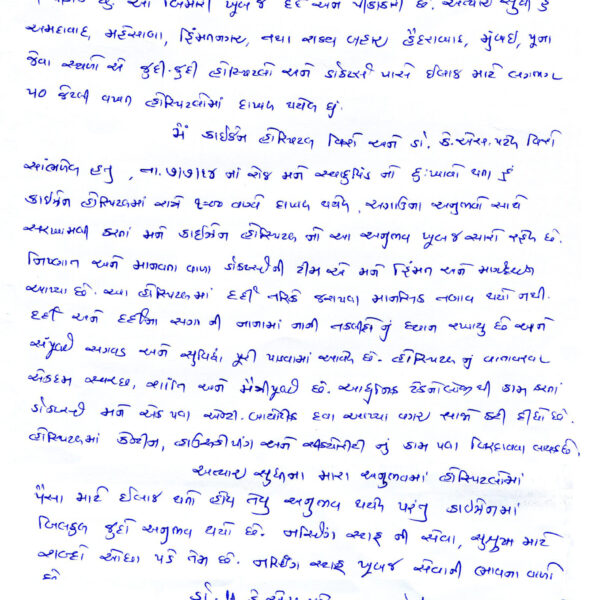 છું. આ બિમારી ખૂબ જ દર્દ અને પીડાકારી છે. અત્યાર સુધી હું
અમદાવાદ, મહેસાણા, હિંમતનગર, તથા રાજ્ય બહાર હૈદરાબાદ, મુંબઈ, પૂના
જેવા સ્થળો એ જુદી-જુદી હોસ્પિટલો અને ડોક્ટર્સ પાસે ઈલાજ માટે લગભગ
૫૦ જેટલી વખત હોસ્પિટલોમાં દાખલ થયેલ છું.
મેં કાઈઝેન હોસ્પિટલ વિશે અને ડો. કે.એસ. પટેલ વિશે
સાંભળેલ હતુ, તા. ૭/૭/૨૪ નાં રોજ મને સ્વાદુપિંડ નો દુઃખાવો થતા હું
કાઈઝેન હોસ્પિટલમાં રાત્રે વાગ્યે દાખલ થયેલ, અગાઉના અનુભવો સાથે
સરખામણી કરતાં મને કાઈઝેન હોસ્પિટલ નો આ અનુભવ ખૂબ જ સારો રહેલ છે.
નિષ્ણાત અને માનવતા વાળા ડોક્ટર્સની ટીમ એ મને હિંમત અને માર્ગદર્શન
આપ્યા છે. આ હોસ્પિટલ માં દર્દી તરીકે જરાપણ માનસિક તણાવ થયો નથી.
દર્દી અને દર્દીના સગા ની નાનામાં નાની તકલીફોનું ધ્યાન રખાયુ છે અને
સંપૂર્ણ સગવડ અને સુવિધા પુરી પાડવામાં આવેલ છે. હોસ્પિટલ નું વાતાવરણ
એકદમ સ્વચ્છ, શાંતિ અને મૈત્રીપૂર્ણ છે. આધુનિક ટેકનોલોજી થી કામ કરતાં
ડોક્ટર્સે મને એક પણ એન્ટી-બાયોટિક દવા આપ્યા વગર સાજો કરી દીધો છે.
હોસ્પિટલમાં કેન્ટીન, હાઉસકીપીંગ અને સીક્યોરીટી નું કામ પણ બિરદાવવા લાયક છે.
અત્યાર સુધીના મારા અનુભવમાં હોસ્પિટલોમાં
પૈસા માટે ઈલાજ થતો હોય તેવુ અનુભવ થયેલ પરંતુ કાઈઝેનમાં
બિલકુલ જુદો અનુભવ થયો છે. નર્સિંગ સ્ટાફ ની સેવા, સુશ્રુષા માટે
શબ્દો ઓછા પડે તેમ છે. નર્સિંગ સ્ટાફ ખૂબ જ સેવાની ભાવના વાળો
છે.